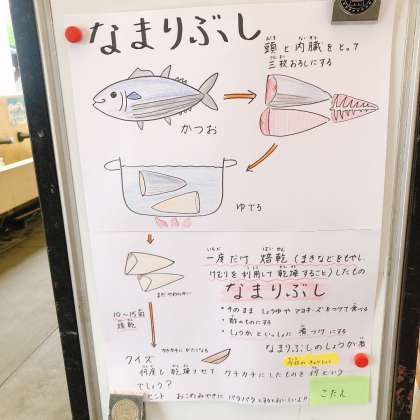 なまりぶし
頭と内臓をとって
三枚おろしにする
かつお
ゆでる
まだ やわらかい
一度だけ 焙乾(まきなどをもやし、
けむりを利用して乾燥すること)したもの
なまりぶし
・そのまましょうゆやマヨネーズをつけて食べる
・酢のものにする
・しょうがといっしょに煮つけにする
なまりぶしのしょうが煮
10〜15回
焙乾
カチカチにかたくなる
クイズ
何度も乾燥させてカチカチにしたものを何という
でしょう?
ヒント おこのみやきに パラパラとするとおいしいよ!!
こたえ